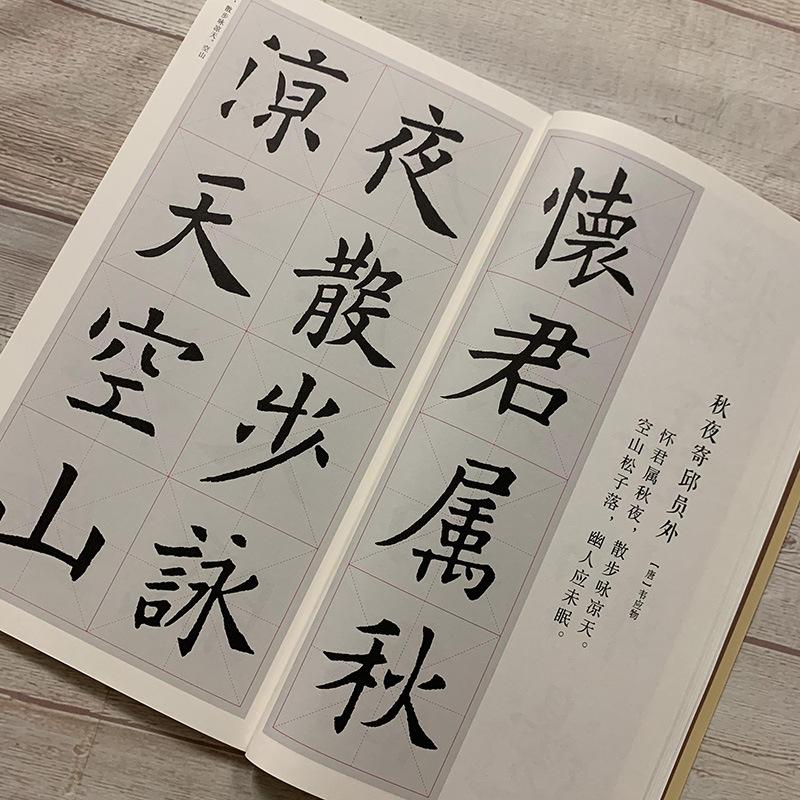 秋夜寄邱员外
【唐】韦应物
怀君属秋夜，散步咏凉天。
空山松子落，幽人应未眠。
懷君属秋
夜散步詠
涼天空山
散步咏凉天。空山